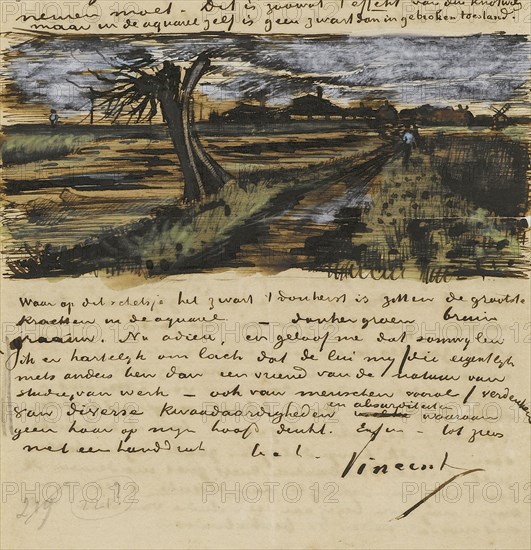 neuren moet. Dit is zoowat 't effect van den knotwilg
maar in de aquarel zelf is geen zwart dan in gebroken toestand.
Waar op dit schetsje het zwart 't donkerst is zitten de grootste
krachten in de aquarel — donkergroen bruin
graauw. Nu adieu, en geloof me dat somwijlen
ik er hartelijk om lach dat de lui mij die eigentlijk
niets anders ben dan een vriend van de natuur van
studie van werk – ook van menschen vooral / verdenken
van diverse kwaadaardigheden en absurditeiten waaraan
geen haar op mijn hoofd denkt. Enfin – tot ziens
met een handdruk
Vincent
279
PHOTO 12